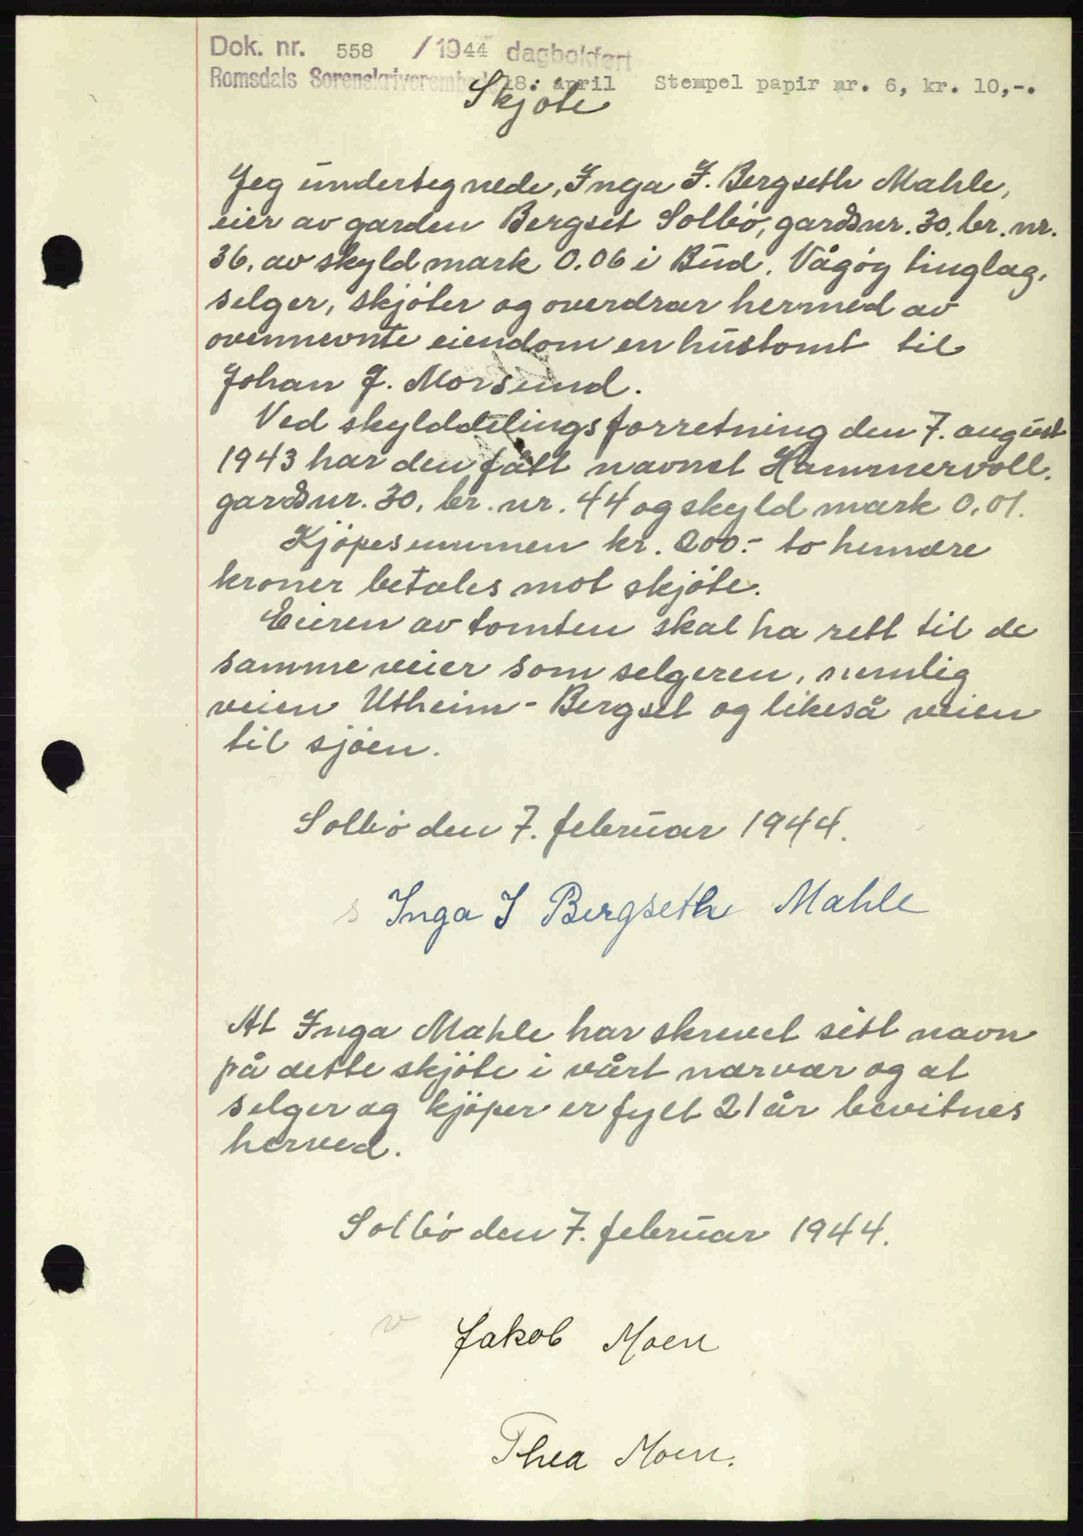 Dok. nr. 558 /1944 dagbokført
Romsdals Sorenskriverembede 18. april Stempel papir nr. 6, kr. 10,-.
Skjøte
Jeg undertegnede, Inga J. Bergseth Mahle,
eier av garden Bergset Solbø, gardsnr. 30, br. nr.
36, av skyld mark 0.06 i Bud. Vågøy tinglag,
selger, skjøter og overdrar hermed av
ovennevnte eiendom en hustomt til
Johan J. Morsund.
Ved skylddelingsforretning den 7. august
1943 har den fått navnet Hammervoll.
gardsnr. 30, br. nr. 44 og skyld mark 0,01.
Kjøpesummen kr. 200.- to hundre
kroner betales mot skjøte.
Eieren av tomten skal ha rett til de
samme veier som selgeren, nemlig
veien Utheim - Bergset og likeså veien
til sjøen.
Solbø den 7. februar 1944.
s Inga J Bergseth Mahle
At Inga Mahle har skrevet sitt navn
på dette skjøte i vårt nærvær og at
selger og kjøper er fylt 21 år bevitnes
herved.
Solbø den 7. februar 1944.
v Jakob Moen
Thea Moen.